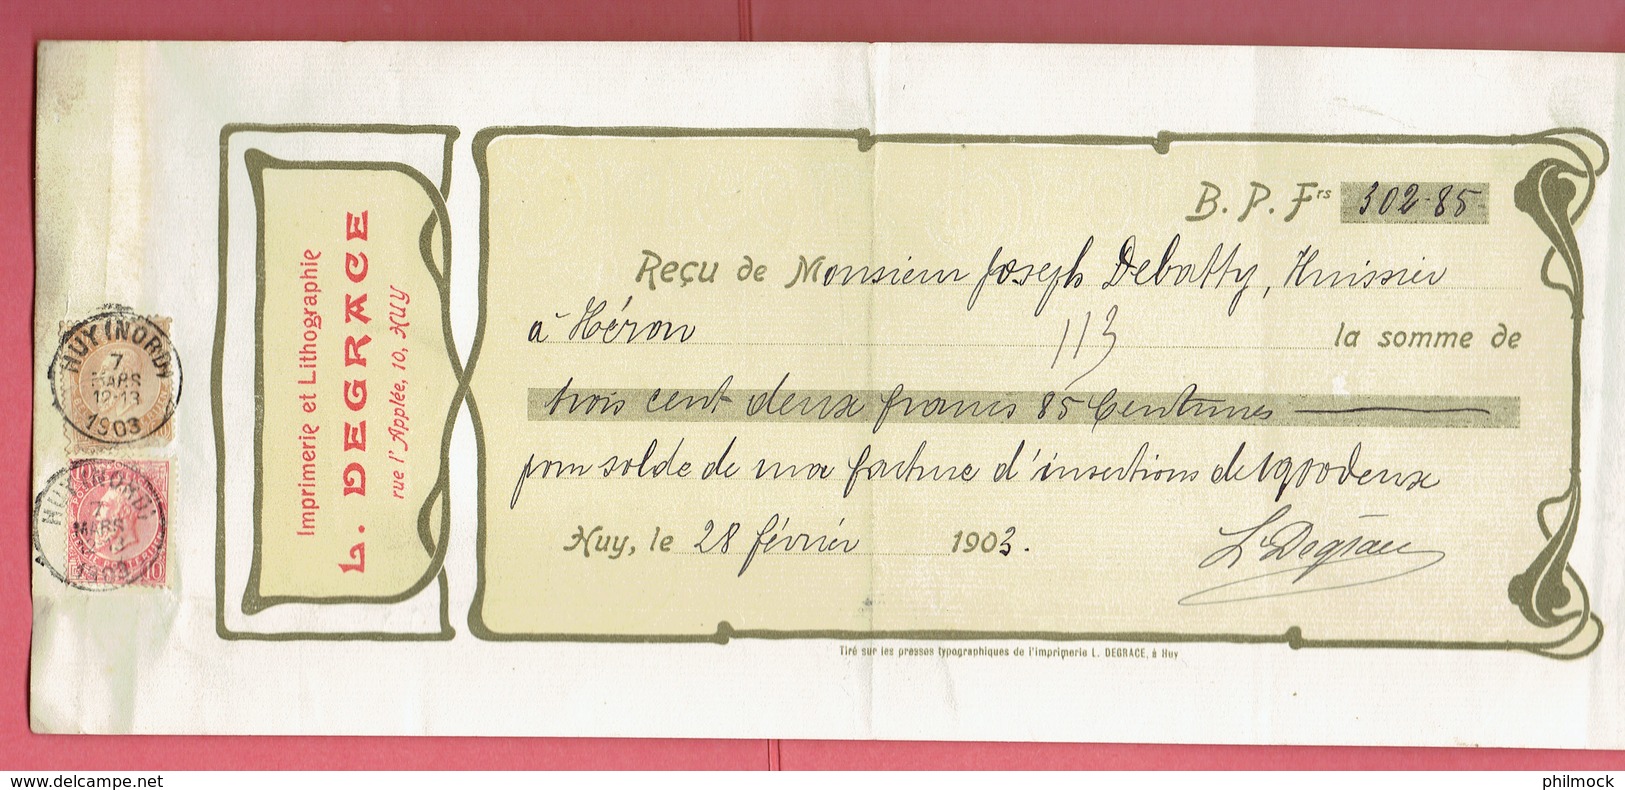 Imprimerie et Lithographie
L. DEGRACE
rue l'Applée, 10, HUY
B. P. Frs 302-85
Reçu de Monsieur Joseph Debatty, Huissier
à Héron 113 la somme de
trois cent deux francs 85 Centimes
pour solde de ma facture d'insertions de
Huy, le 28 février 1903.
L. Degrace
Tiré sur les presses typographiques de l'imprimerie L. DEGRACE, à Huy
HUY (NORD)
7
MARS
12-13
1903
HUY (NORD)
7
MARS
1903
10
10
delcampe.net
philmock